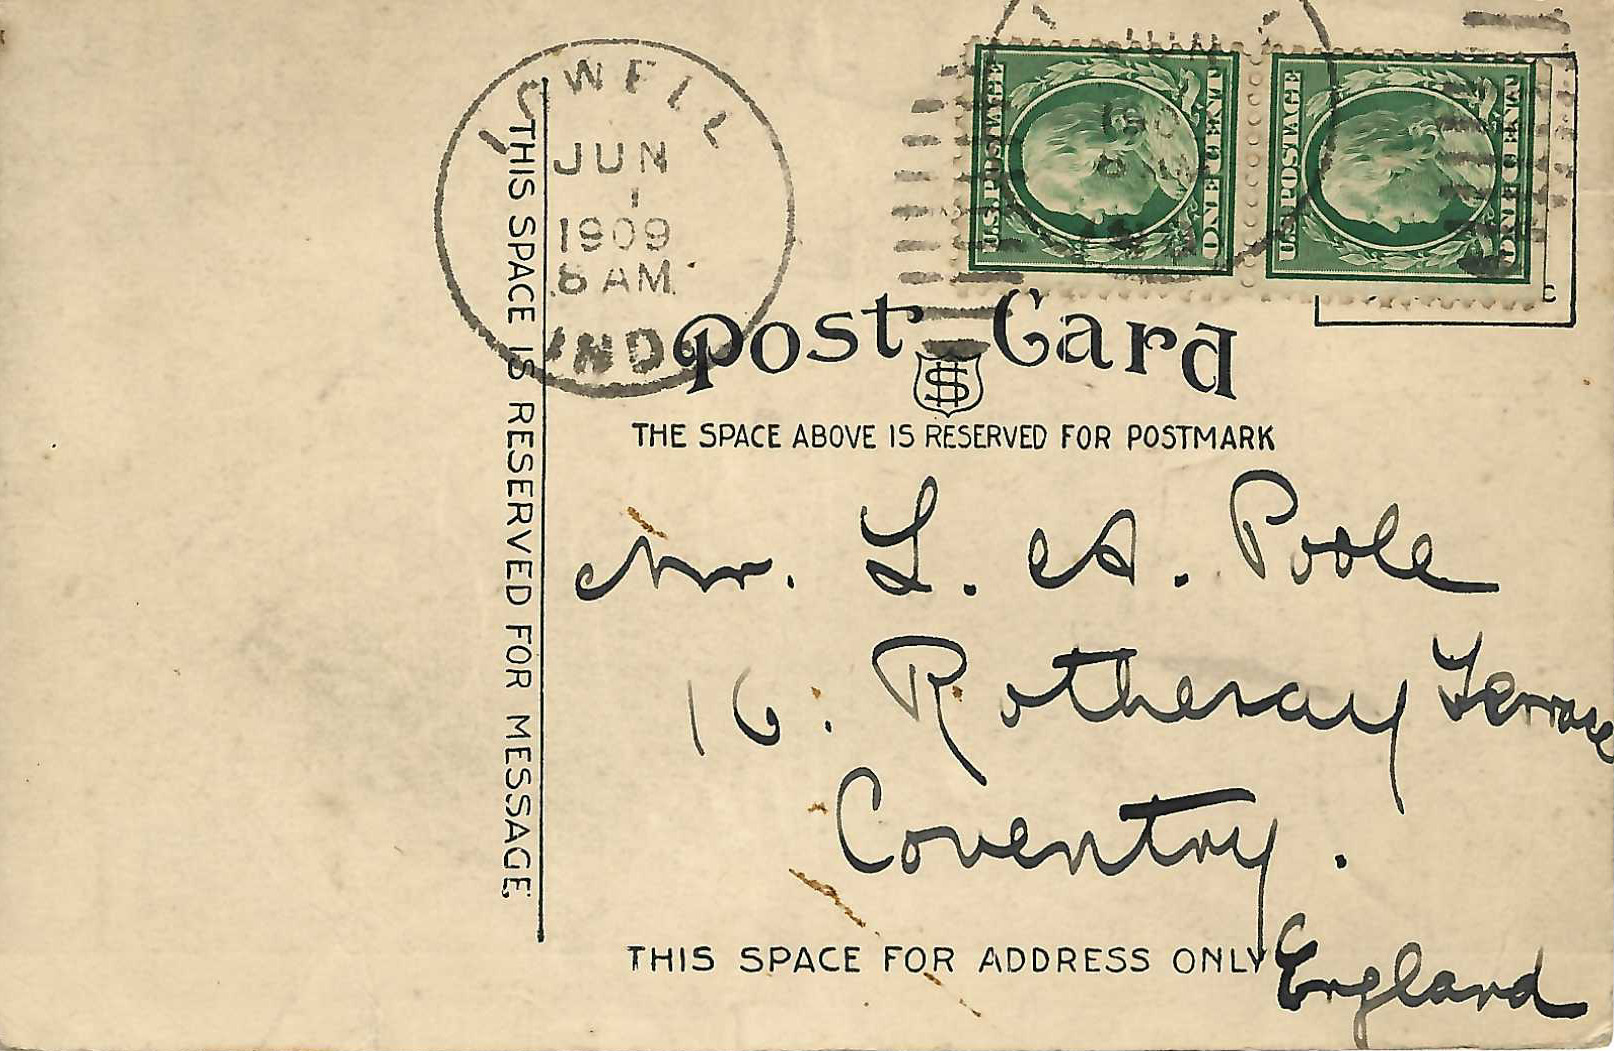 JUN
1
1909
8 AM
IND.
U.S. POSTAGE
ONE CENT
U.S. POSTAGE
ONE CENT
Post Card
THE SPACE ABOVE IS RESERVED FOR POSTMARK
THIS SPACE IS RESERVED FOR MESSAGE.
Mr. L. A. Poole
16. Rothesay Terrace
Coventry.
England
THIS SPACE FOR ADDRESS ONLY